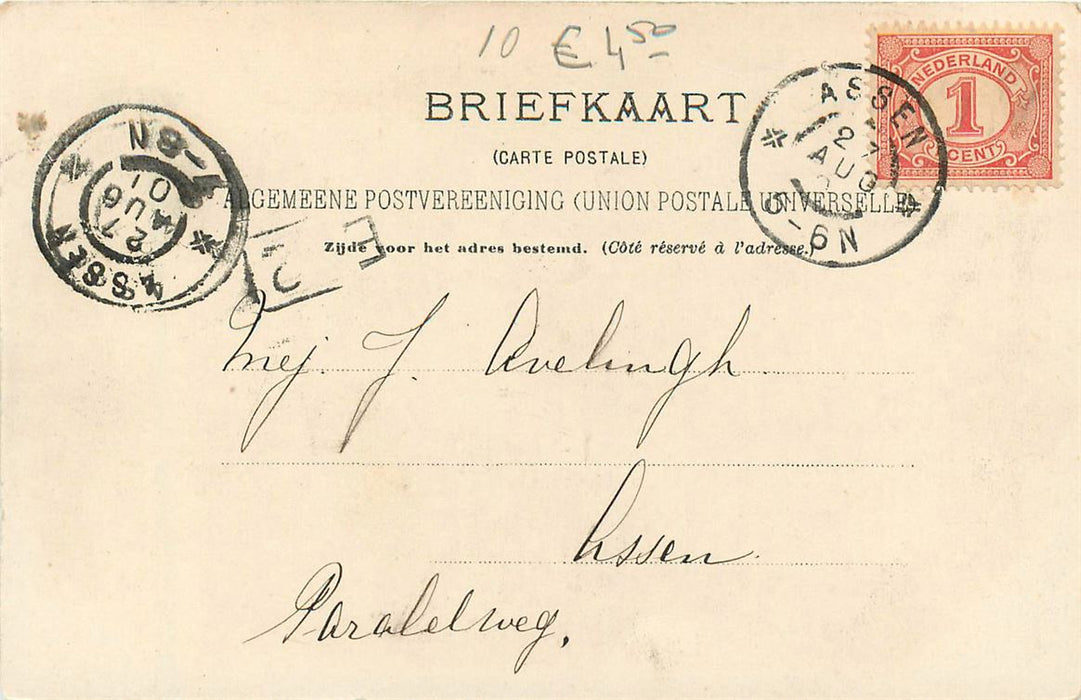 10 € 4 50
BRIEFKAART
(CARTE POSTALE)
ALGEMEENE POSTVEREENIGING (UNION POSTALE UNIVERSELLE)
Zijde voor het adres bestemd. (Côté réservé à l'adresse.)
NEDERLAND
1
CENT
ASSEN
27
AUG
5-6N
ASSEN
27
AUG
01
7-8N
E
Mej. J. Avelingh.
Assen.
Paralelweg.